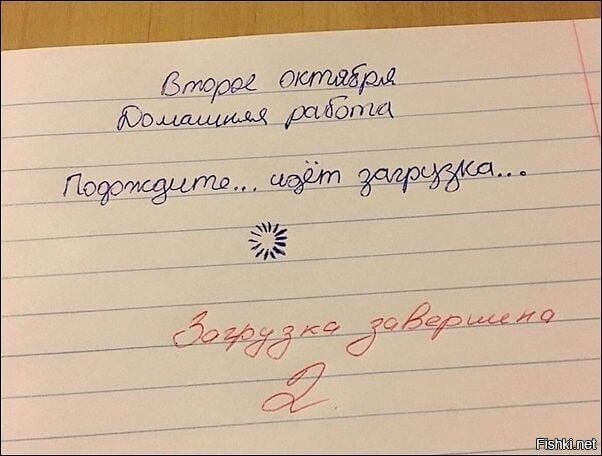 Второе октября
Домашняя работа
Подождите... идёт загрузка...
Загрузка завершена
2
Fishki.net